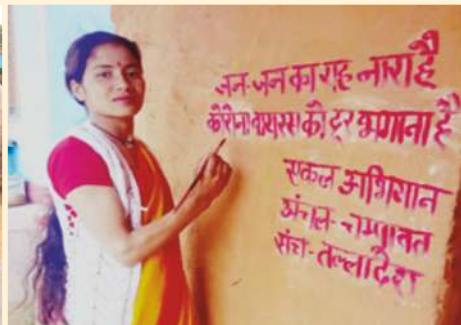 जन-जन का यह नारा है
कोरोना वायरस को दूर भगाना है
एकल अभियान
अंचल-चम्पावत
संच-तल्लादेश